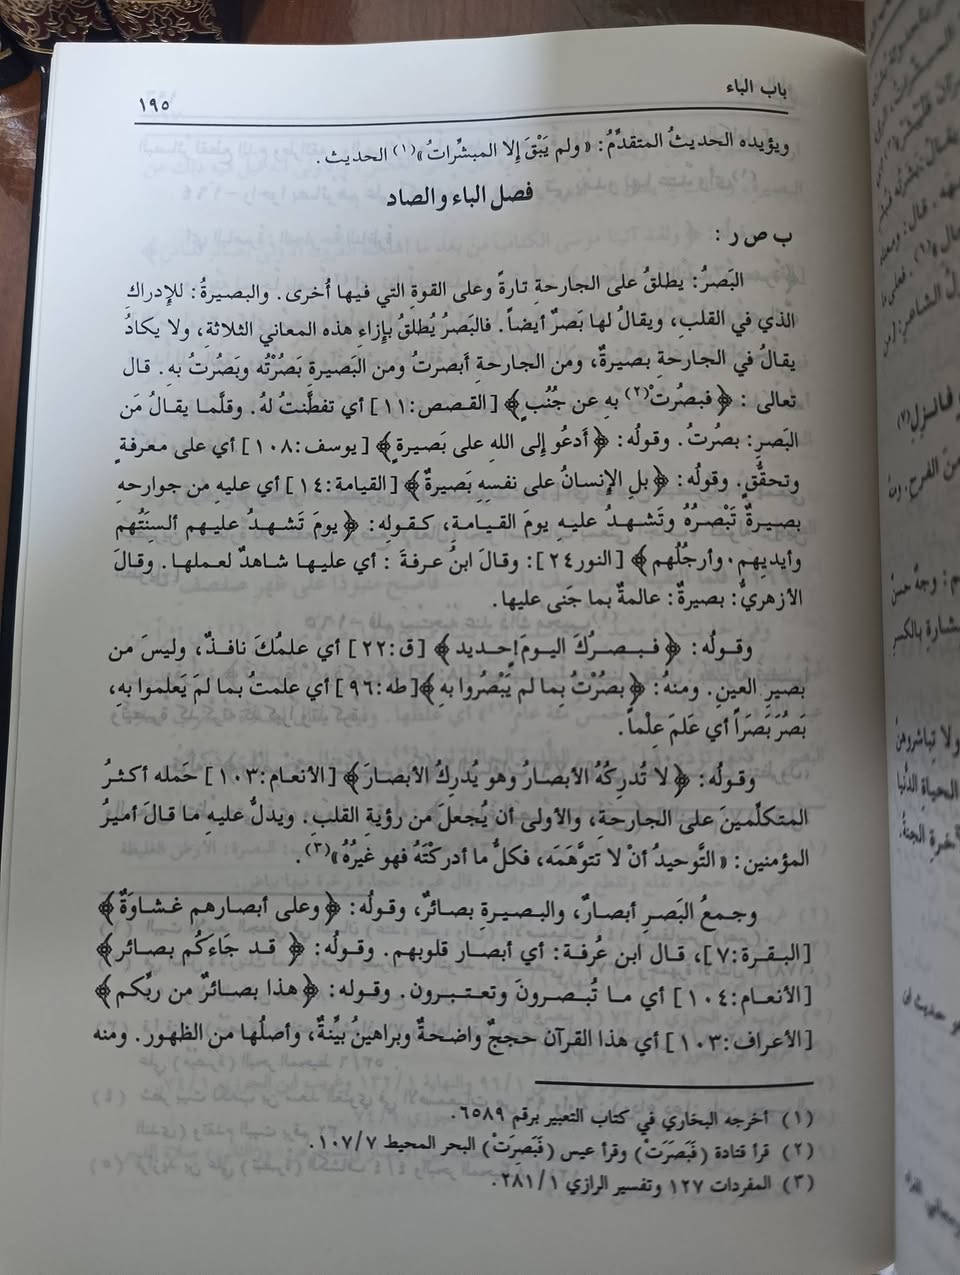 باب الباء
١٩٥
ويؤيده الحديثُ المتقدِّمُ: «ولم يَبْقَ إلا المبشِّراتُ»(١) الحديث.
فصل الباء والصاد
ب ص ر :
البَصرُ: يطلقُ على الجارحةِ تارةً وعلى القوةِ التي فيها أُخرى. والبصيرةُ: للإدراك
الذي في القلبِ، ويقالُ لها بَصرٌ أيضاً. فالبَصرُ يُطلقُ بإزاءِ هذه المعاني الثلاثةِ، ولا يكادُ
يقالُ في الجارحةِ بصيرةٌ، ومن الجارحةِ أَبصرتُ ومن البَصيرةِ بَصُرْتُه وبَصُرتُ بهِ. قال
تعالى : ﴿فبصُرتْ(٢) بهِ عن جُنُبٍ﴾ [القصص:١١] أي تفطَّنتُ لهُ. وقلَّما يقالُ مَن
البَصرِ: بصُرتُ. وقولُه: ﴿أَدعُو إلى اللهِ على بَصيرةٍ﴾ [يوسف:١٠٨] أي على معرفةٍ
وتحقُّقٍ. وقولُه: ﴿بلِ الإنسانُ على نفسِهِ بَصيرةٌ﴾ [القيامة:١٤] أي عليهِ من جوارحهِ
بصيرةٌ تَبْصُرُهُ وتَشهدُ عليهِ يومَ القيامةِ، كقولِهِ: ﴿يومَ تَشهدُ عليهم ألسِنَتُهم
وأيديهِم وأرجُلُهم﴾ [النور٢٤]: وقالَ ابنُ عرفةَ : أي عليها شاهدٌ لعملها. وقالَ
الأزهريُّ: بصيرةٌ: عالمةٌ بما جَنى عليها.
وقولُه: ﴿فبصرُكَ اليومَ حديد﴾ [ق:٢٢] أي علمُكَ نافذٌ، وليسَ من
بصيرِ العينِ. ومنهُ: ﴿بصُرْتُ بما لم يَبْصُروا بهِ﴾[طه:٩٦] أي علمتُ بما لمَ يَعلموا بهِ،
بَصُرَ بَصَراً أي عَلمَ عِلْماً.
وقولُه: ﴿لا تُدركُهُ الأبصارُ وهو يُدركُ الأبصارَ﴾ [الأنعام:١٠٣] حَمله أكثرُ
المتكلِّمينَ على الجارحةِ، والأولى أن يُجعلَ من رؤيةِ القلبِ. ويدلُّ عليهِ ما قالَ أميرُ
المؤمنين: «التَّوحيدُ أنْ لا تتوَّهَمَه، فكلُّ ما أدركْتَهُ فهو غيرُهُ»(٣).
وجمعُ البَصرِ أبصارٌ، والبصيرةِ بصائرٌ، وقولُه: ﴿وعلى أبصارهم غشاوَةٌ﴾
[البقرة:٧]، قال ابن عُرفة: أي أبصار قلوبهم. وقولُه: ﴿قد جَاءَكُم بصائر﴾
[الأنعام:١٠٤] أي ما تُبصرونَ وتعتبرون. وقوله: ﴿هذا بصائرٌ من ربِّكم﴾
[الأعراف:١٠٣] أي هذا القرآن حججٌ واضحةٌ وبراهينُ بيِّنةٌ، وأصلُها من الظهور. ومنه
(١) أخرجه البخاري في كتاب التعبير برقم ٦٥٨٩.
(٢) قرأ قتادة (فَبَصَرَتْ) وقرأ عيس (فَبَصِرَتْ) البحر المحيط ١٠٧/٧.
(٣) المفردات ١٢٧ وتفسير الرازي ٢٨١/١.